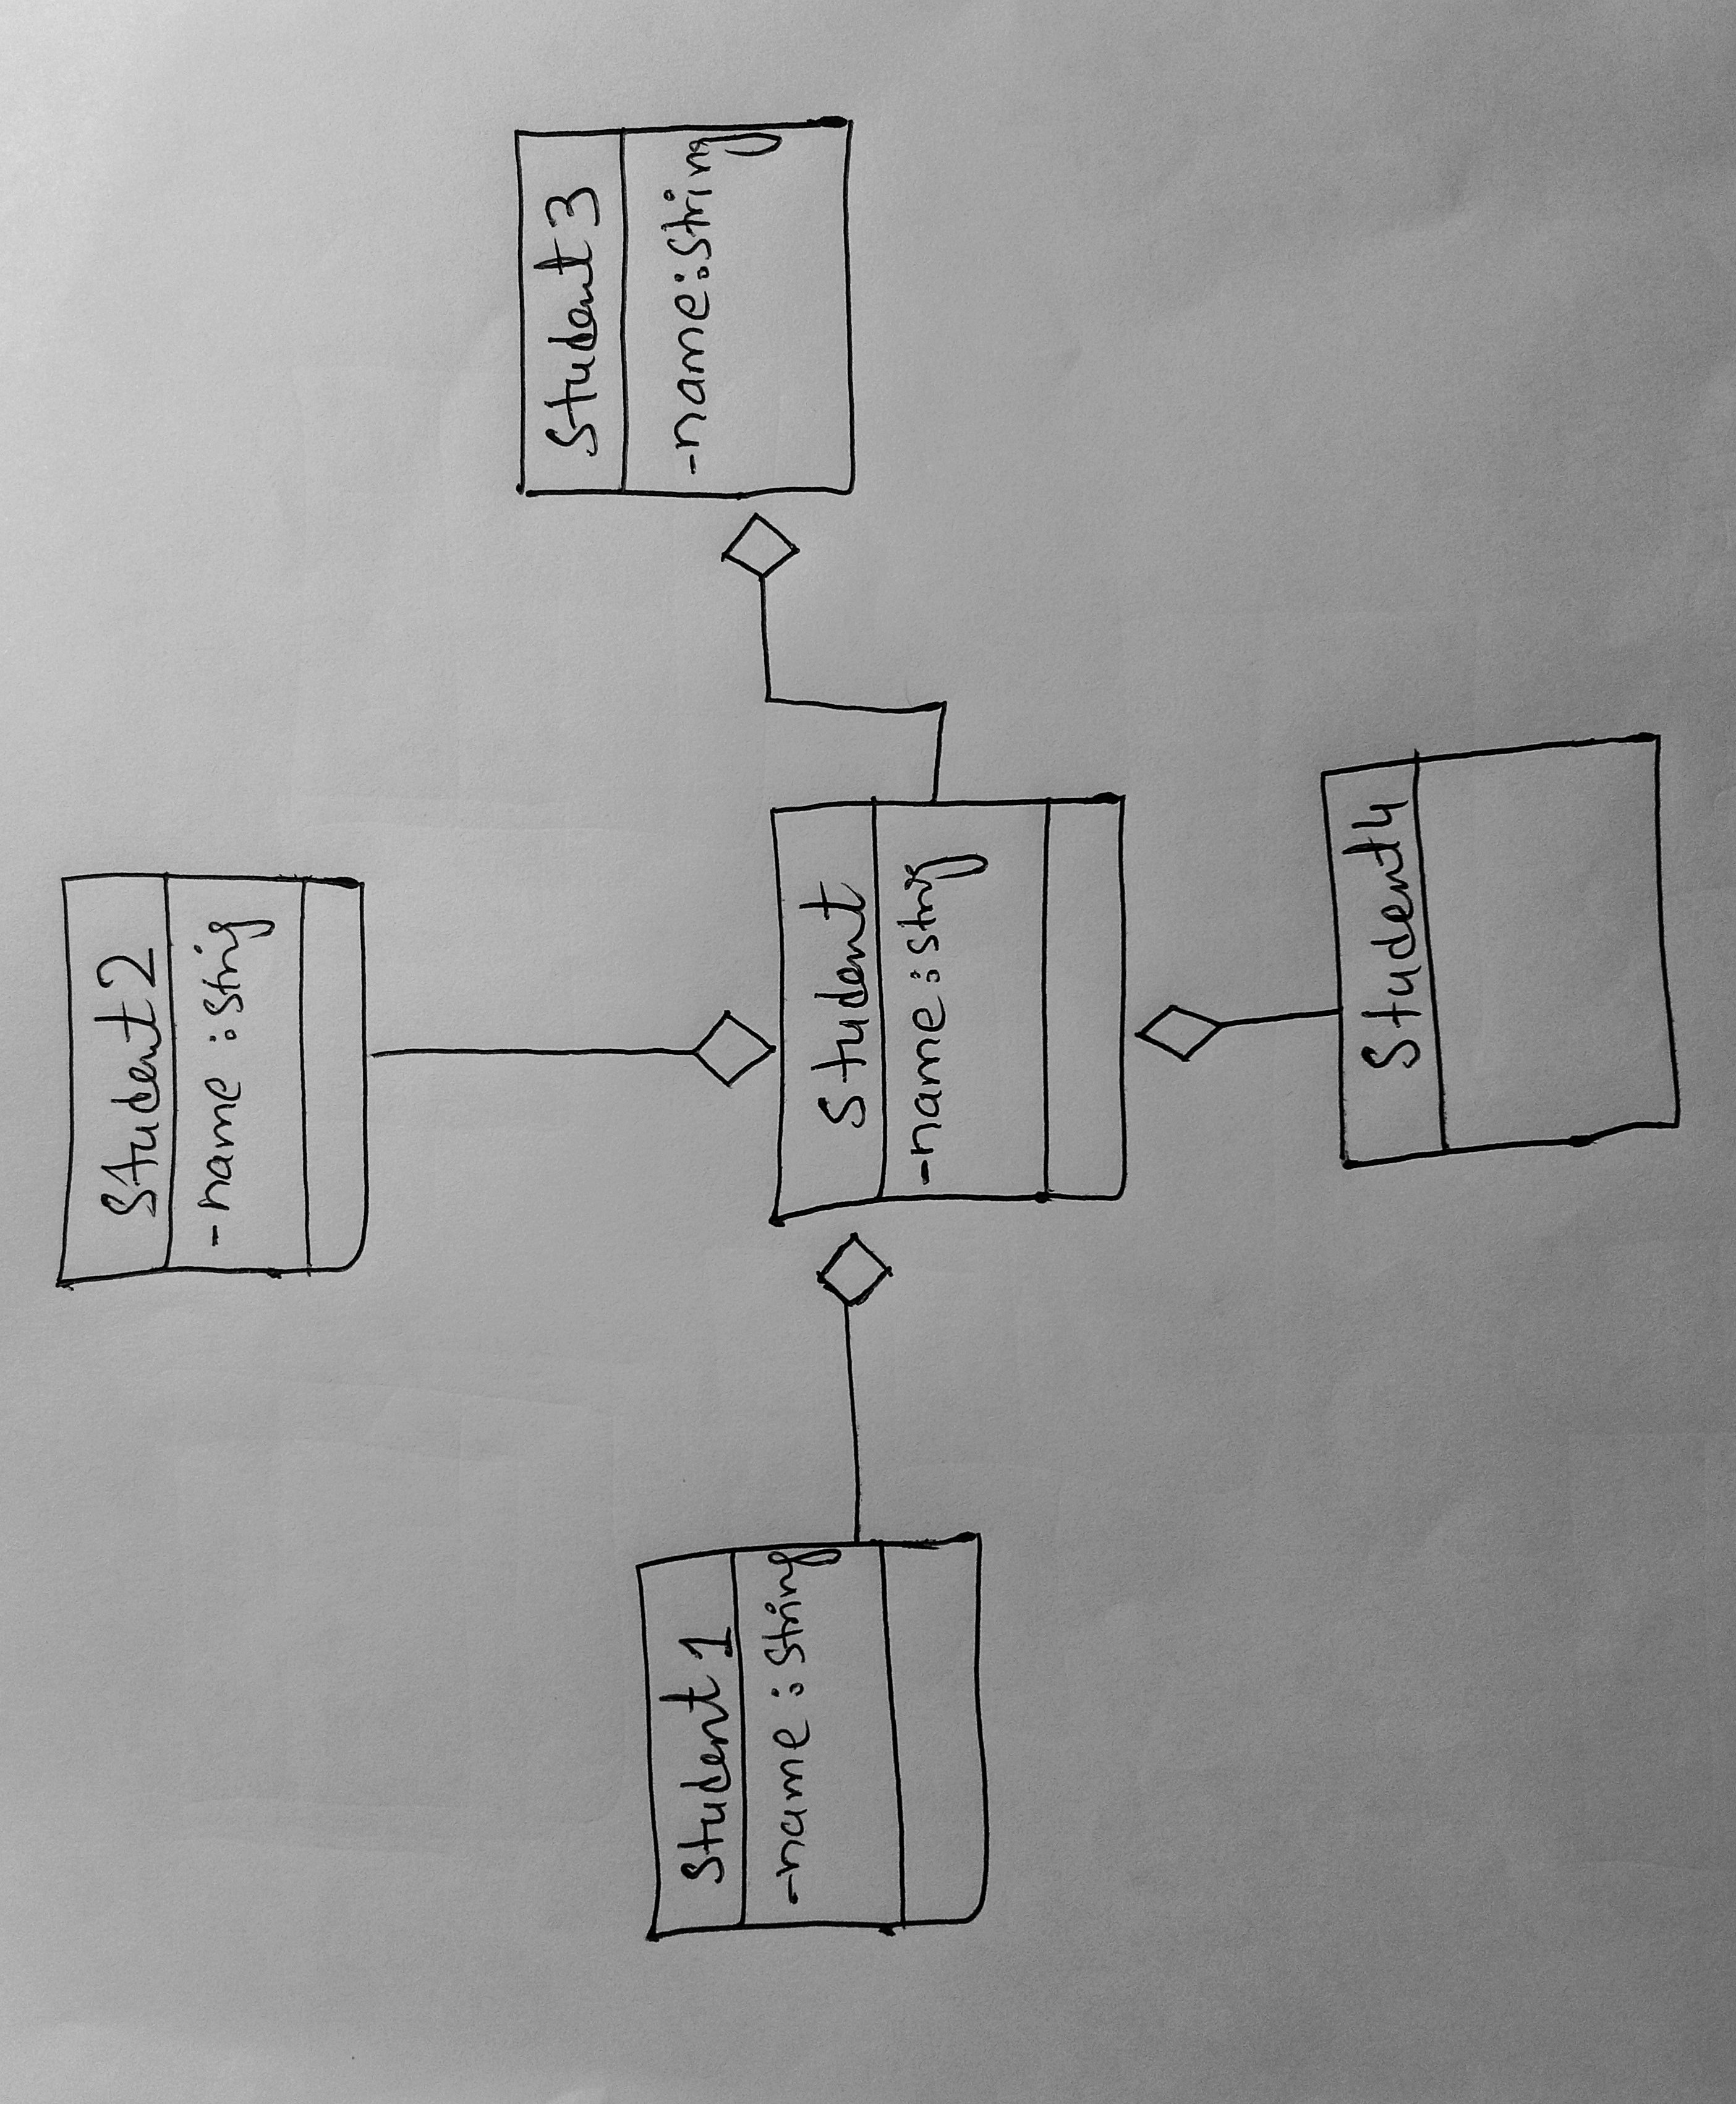 Student 2
-name : Strig
Student 3
-name : String
Student 1
-name : String
Student
-name : Strig
Student 4